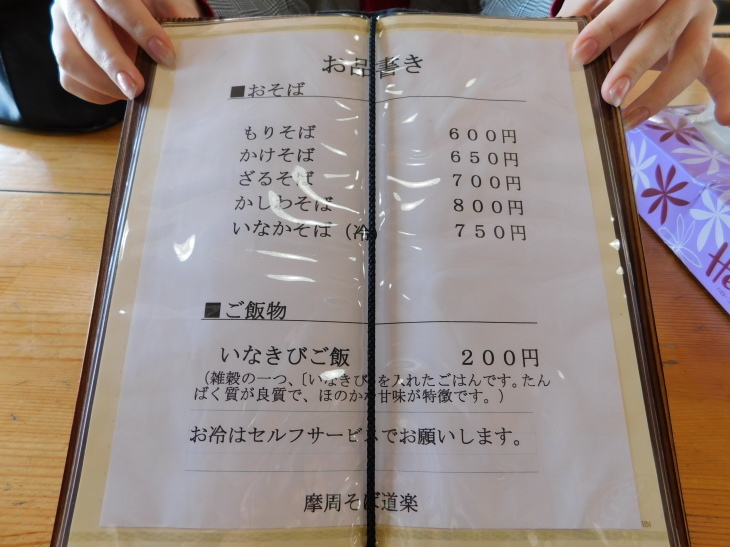 お品書き
■おそば
もりそば 600円
かけそば 650円
ざるそば 700円
かしわそば 800円
いなかそば(冷) 750円
■ご飯物
いなきびご飯 200円
(雑穀の一つ、〔いなきび〕を入れたごはんです。たん
ぱく質が良質で、ほのかな甘味が特徴です。)
お冷はセルフサービスでお願いします。
摩周そば道楽
He